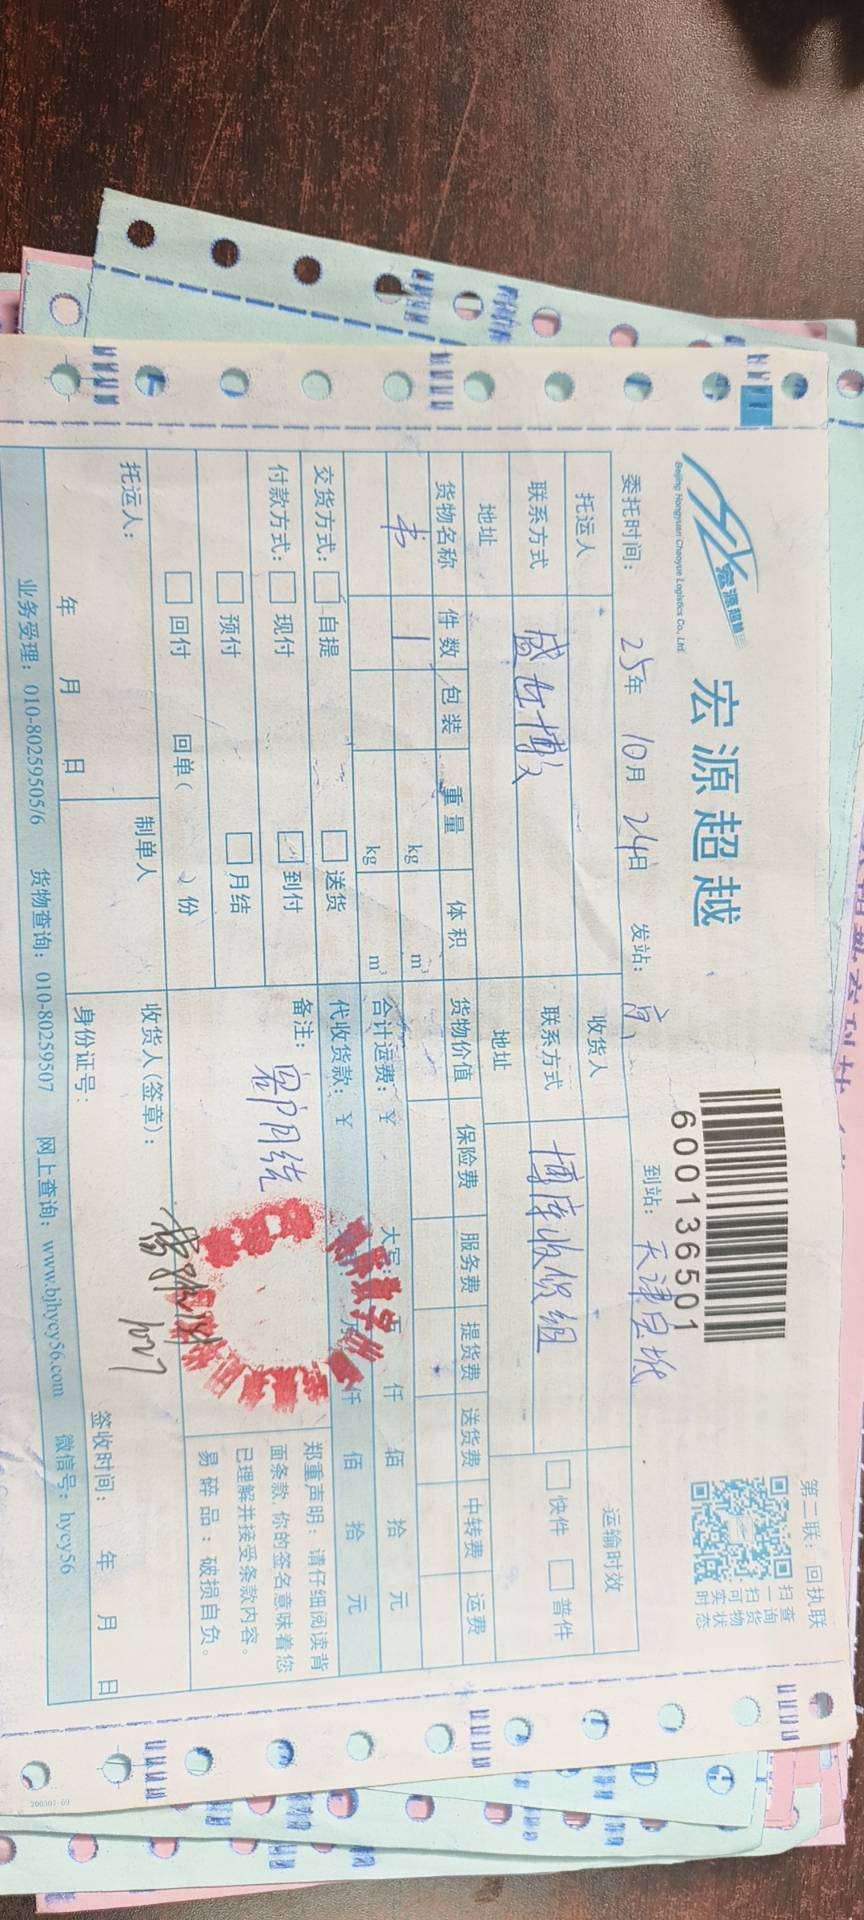 宏源超越
Beijing Hongyuan Chaoyue Logistics Co., Ltd
宏源超越
600136501
第二联：回执联
扫一扫可实时
查询货物状态
委托时间：25年10月24日 发站：京 到站：天津宝坻
托运人 收货人 运输时效
联系方式 盛世博文 联系方式 博库收货组 快件 普件
地址 地址
货物名称 件数 包装 重量 体积 货物价值 保险费 服务费 提货费 送货费 中转费 运费
书 1 kg m³
kg m³ 合计运费：￥ 大写： 万 仟 佰 拾 元
交货方式： 自提 送货 代收货款：￥ 万 仟 佰 拾 元
付款方式： 现付 到付 备注：
预付 月结
回付 回单( 份
郑重声明：请仔细阅读背
面条款，你的签名意味着您
已理解并接受条款内容。
易碎品：破损自负。
托运人： 制单人 收货人(签章)：
年 月 日 身份证号： 签收时间： 年 月 日
业务受理：010-80259505/6 货物查询：010-80259507 网上查询：www.bjhycy56.com 微信号：hycy56